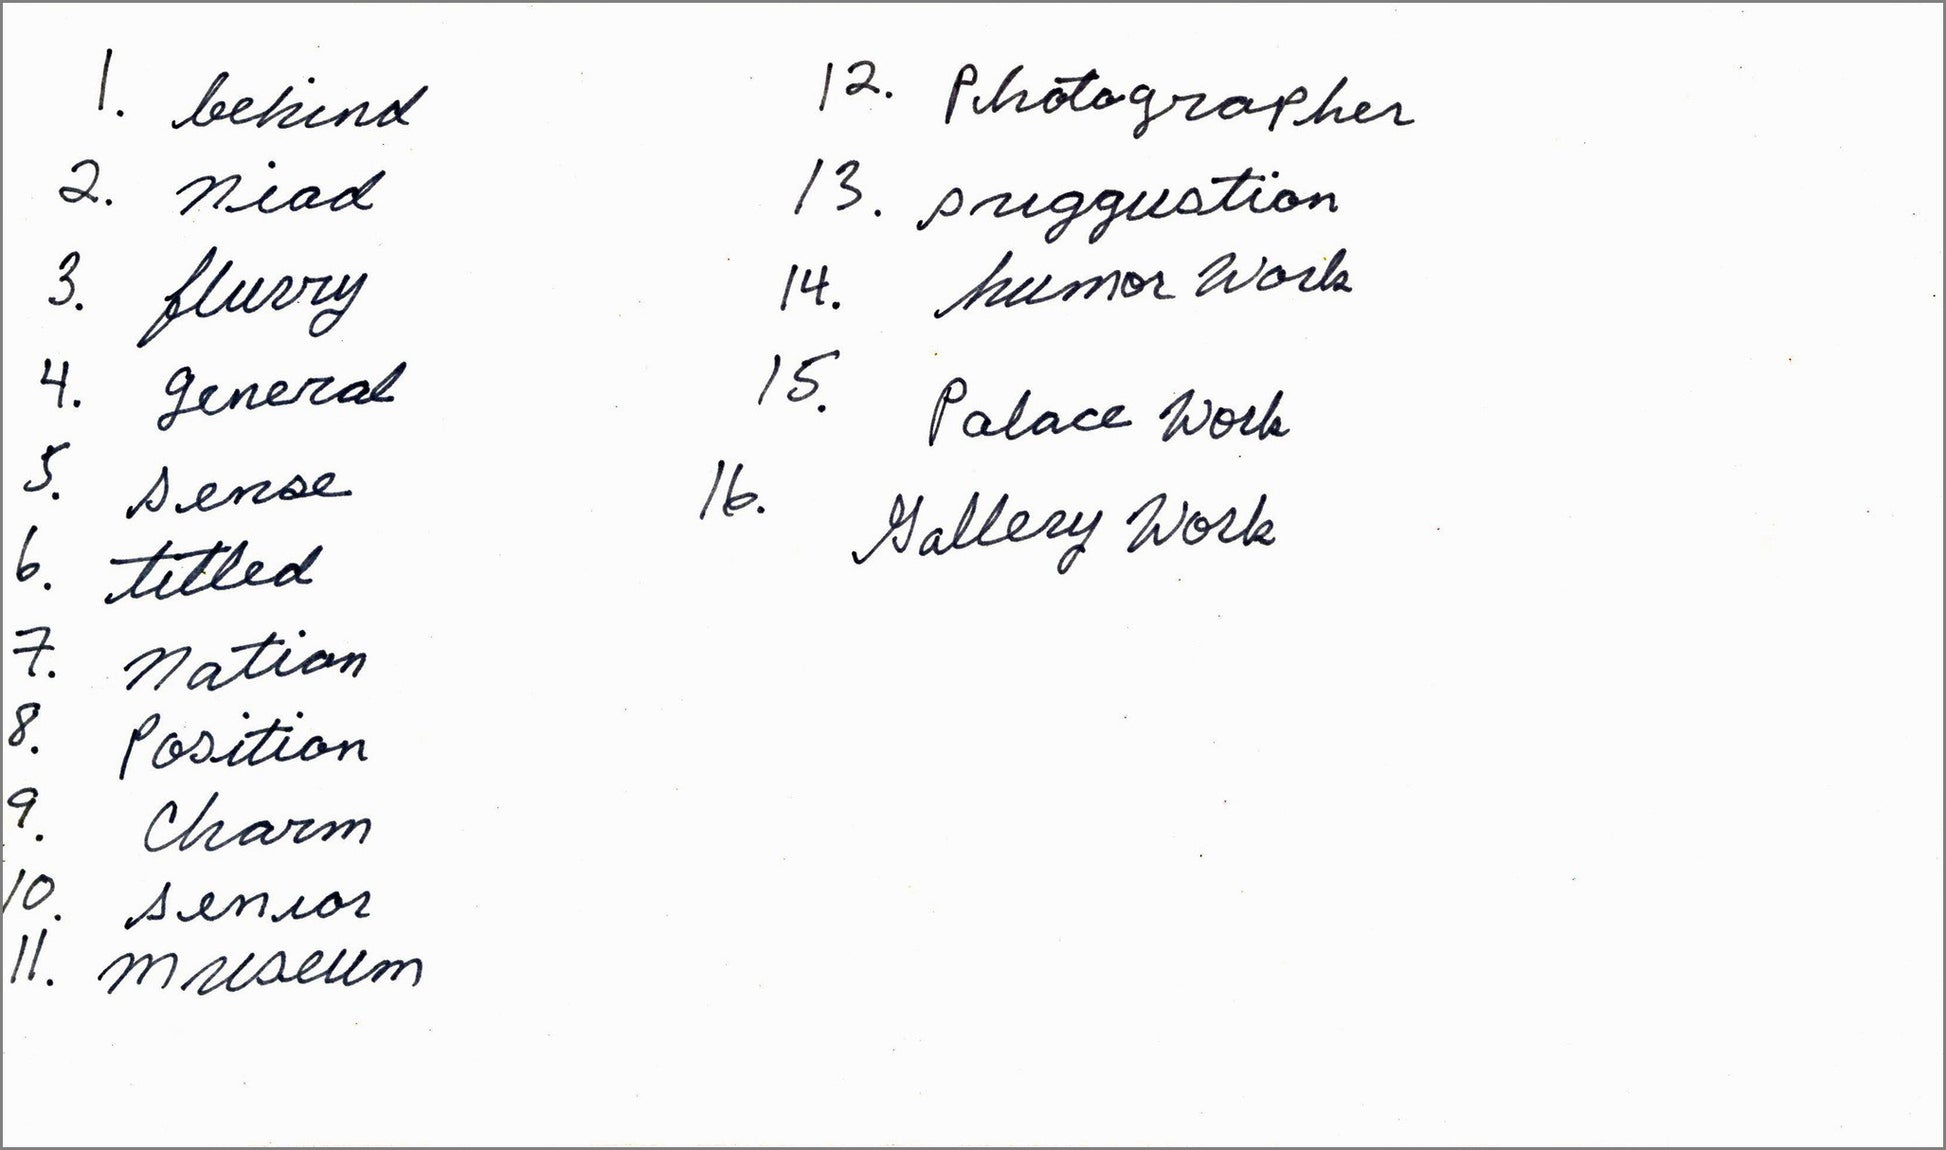 1. behind
2. Niad
3. flurry
4. general
5. sense
6. titled
7. Nation
8. Position
9. Charm
10. senior
11. museum
12. Photographer
13. suggustion
14. humor Work
15. Palace Work
16. Gallery Work